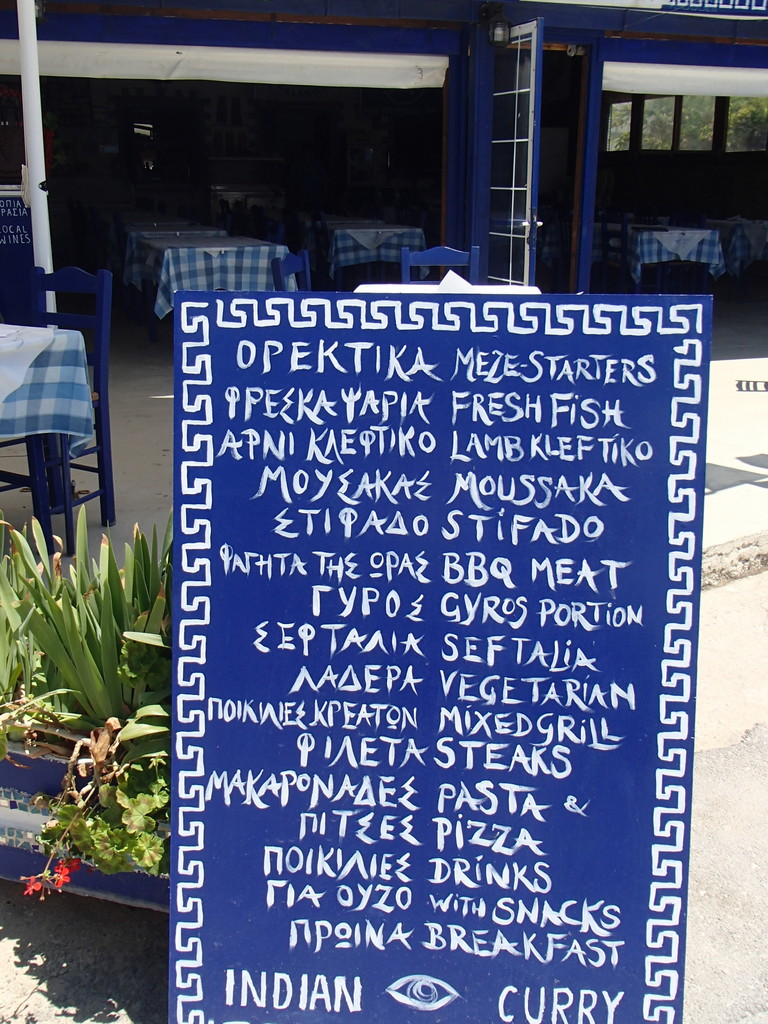 ΟΠΙΑ
ΡΑΣΙΑ
LOCAL
WINES
ΟΡΕΚΤΙΚΑ MEZE-STARTERS
ΦΡΕΣΚΑ ΨΑΡΙΑ FRESH FISH
ΑΡΝΙ ΚΛΕΦΤΙΚΟ LAMB KLEFTIKO
ΜΟΥΣΑΚΑΣ MOUSSAKA
ΣΤΙΦΑΔΟ STIFADO
ΦΑΓΗΤΑ ΤΗΣ ΩΡΑΣ BBQ MEAT
ΓΥΡΟΣ GYROS PORTION
ΣΕΦΤΑΛΙΑ SEFTALIA
ΛΑΔΕΡΑ VEGETARIAN
ΠΟΙΚΙΛΙΕΣ ΚΡΕΑΤΩΝ MIXED GRILL
ΦΙΛΕΤΑ STEAKS
ΜΑΚΑΡΟΝΑΔΕΣ PASTA &
ΠΙΤΣΕΣ PIZZA
ΠΟΙΚΙΛΙΕΣ DRINKS
ΓΙΑ ΟΥΖΟ WITH SNACKS
ΠΡΩΙΝΑ BREAKFAST
INDIAN CURRY